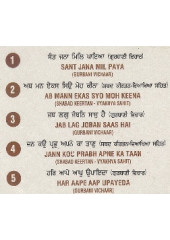 1
ਸੰਤ ਜਨਾ ਮਿਲਿ ਪਾਇਆ (ਗੁਰਬਾਣੀ ਵਿਚਾਰ)
SANT JANA MIL PAYA
(GURBANI VICHAAR)
2
ਅਬ ਮਨ ਏਕਸ ਸਿਉ ਮੋਹੁ ਕੀਨਾ (ਸ਼ਬਦ ਕੀਰਤਨ-ਵਿਆਖਿਆ ਸਹਿਤ)
AB MANN EKAS SYO MOH KEENA
(SHABAD KEERTAN - VYAKHYA SAHIT)
3
ਜਬ ਲਗੁ ਜੋਬਨਿ ਸਾਸੁ ਹੈ (ਗੁਰਬਾਣੀ ਵਿਚਾਰ)
JAB LAG JOBAN SAAS HAI
(GURBANI VICHAAR)
4
ਜਨ ਕਉ ਪ੍ਰਭੁ ਅਪਨੇ ਕਾ ਤਾਣੁ (ਸ਼ਬਦ ਕੀਰਤਨ-ਵਿਆਖਿਆ ਸਹਿਤ)
JANN KOU PRABH APNE KA TAAN
(SHABAD KEERTAN - VYAKHYA SAHIT)
5
ਹਰਿ ਆਪੇ ਆਪੁ ਉਪਾਇਦਾ (ਗੁਰਬਾਣੀ ਵਿਚਾਰ)
HAR AAPE AAP UPAYEDA
(GURBANI VICHAAR)